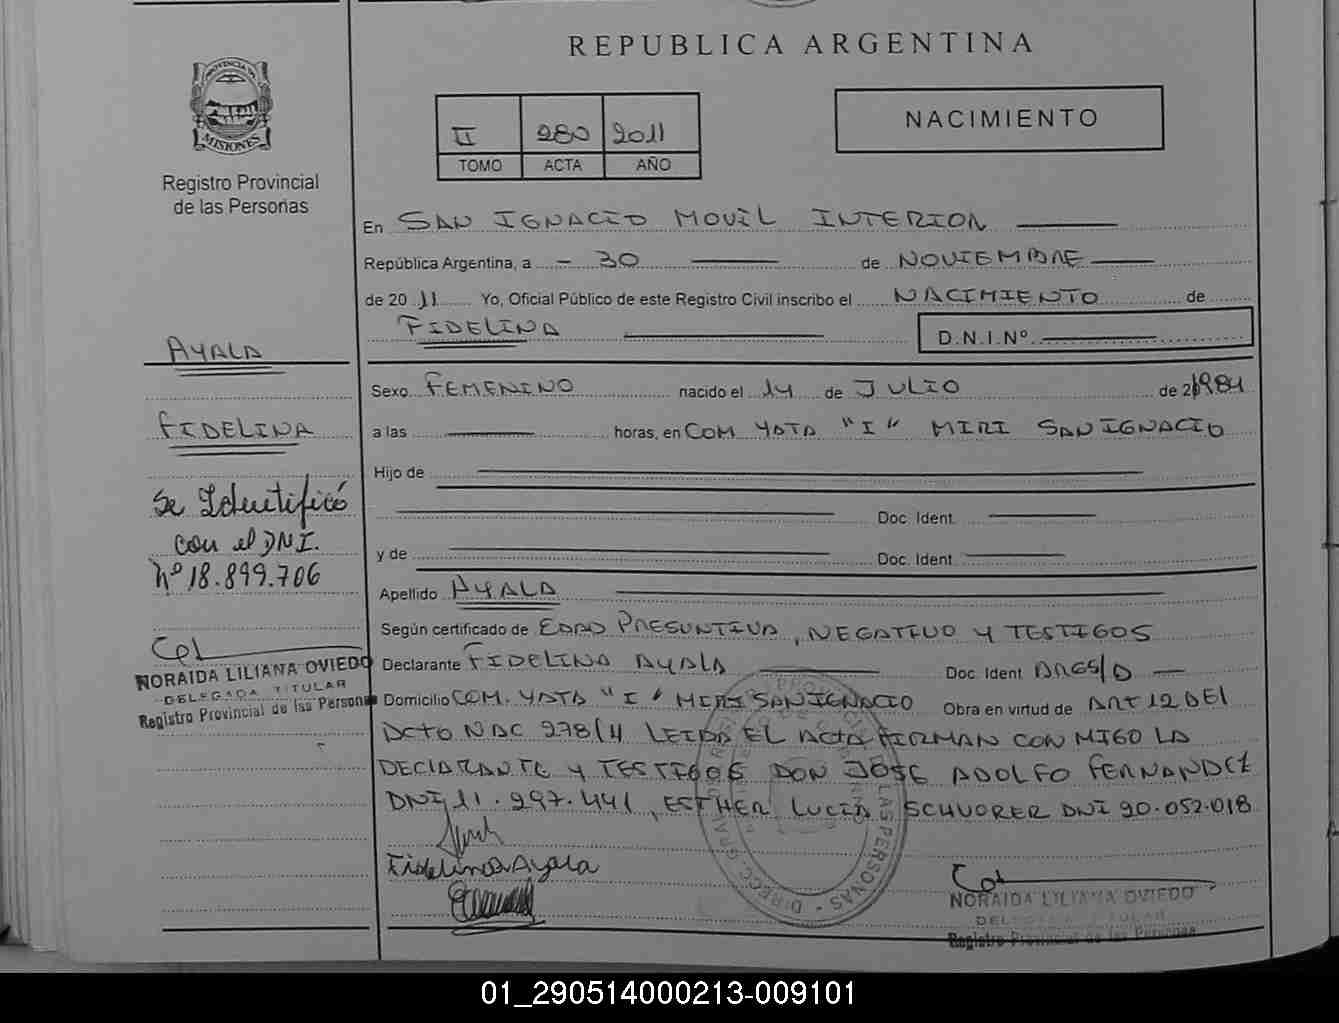 REPUBLICA ARGENTINA
PROVINCIA DE
MISIONES
Registro Provincial
de las Personas
II 280 2011
TOMO ACTA AÑO
NACIMIENTO
En SAN IGNACIO MOVIL INTERIOR
República Argentina, a - 30 de NOVIEMBRE
de 20 11 Yo, Oficial Público de este Registro Civil inscribo el NACIMIENTO de
FIDELINA D.N.I.Nº
AYALA
FIDELINA
Se Identificó
con el DNI.
Nº 18.899.706
NORAIDA LILIANA OVIEDO
DELEGADA TITULAR
Registro Provincial de las Personas
Sexo FEMENINO nacido el 14 de JULIO de 1984
a las horas, en COM YATA "I" MIRI SAN IGNACIO
Hijo de
Doc. Ident.
y de Doc. Ident.
Apellido AYALA
Según certificado de EDAD PRESUNTIVA, NEGATIVO Y TESTIGOS
Declarante FIDELINA AYALA Doc. Ident
Domicilio COM. YATA "I" MIRI SAN IGNACIO Obra en virtud de ART 12 DEL
DCTO NAC 278/11 LEIDA EL ACTA FIRMAN CON MIGO LA
DECLARANTE Y TESTIGOS DON JOSE ADOLFO FERNANDEZ
DNI 11.297.441, ESTHER LUCIA SCHVORER DNI 20.052.018
Fidelina Ayala
NORAIDA LILIANA OVIEDO
DELEGADA TITULAR
Registro Provincial de las Personas
01_290514000213-009101